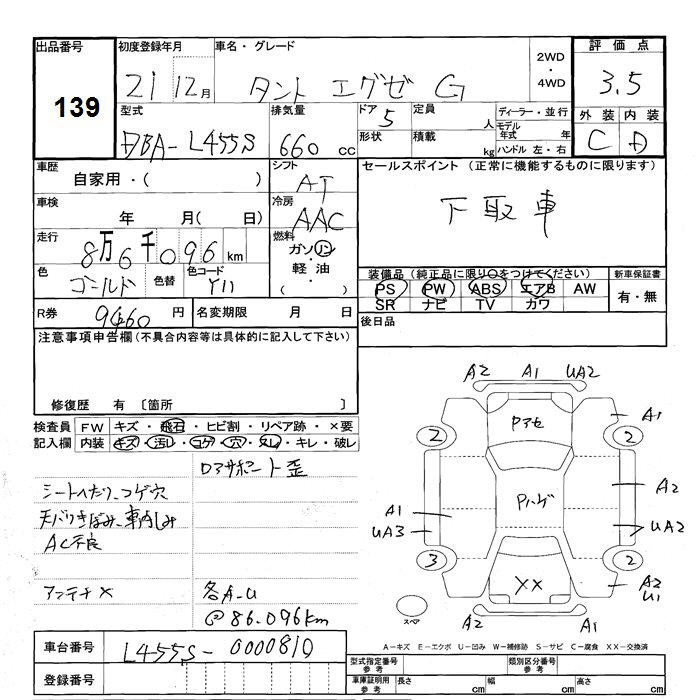 出品番号
139
初度登録年月
21 12月
車名・グレード
タント エグゼ G
2WD
・
4WD
評価点
3.5
型式
DBA-L455S
排気量
660 cc
ドア 5
形状
定員 人
積載 kg
ディーラー・並行
モデル年式 年
ハンドル 左・右
外装 内装
C D
車歴
自家用・( )
シフト
AT
車検
年 月( 日)
冷房
AAC
走行
8万6千096 km
燃料
ガソリン
・
軽油
( ・ )
色
ゴールド
色替
色コード
Y11
R券
9460 円
名変期限 月 日
セールスポイント (正常に機能するものに限ります)
下取車
装備品(純正品に限り○をつけてください)
PS PW ABS エアB AW
SR ナビ TV カワ
新車保証書
有・無
後日品
注意事項申告欄(不具合内容等は具体的に記入して下さい)
修復歴 有 〔箇所 〕
検査員記入欄
FW キズ・飛石・ヒビ割・リペア跡・×要
内装 キズ・汚レ・コゲ・穴・ヌレ・キレ・破レ
ロアサポート歪
シートへたり、コゲ穴
天バリきばみ、車内しみ
AC不良
アンテナ×
各A-U
@86.096km
A2 A1 UA2
Pアセ
A1
2
2
Pハゲ
A2
A1
UA3
UA2
3
2
XX
A2
U1
スペア
A2 A1
A-キズ E-エクボ U-凹み W-補修跡 S-サビ C-腐食 XX-交換済
車台番号
L455S-0000810
登録番号
型式指定番号
参考
類別区分番号
参考
車庫証明用
参考
長さ cm
幅 cm
高さ cm